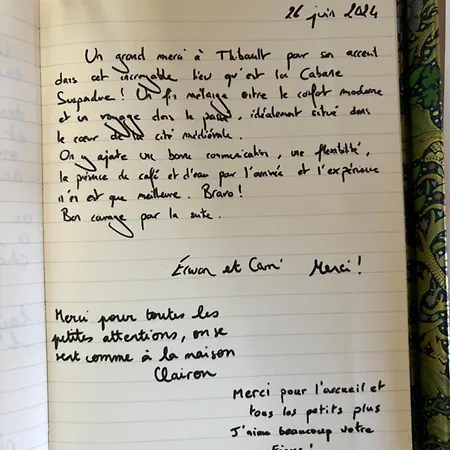 26 juin 2024
Un grand merci à Thibault pour son accent
dans cet incroyable lieu qu'est la Cabane
Suspendue ! Un fin mélange entre le confort moderne
et un voyage dans le passé, idéalement situé dans
le cœur de la cité médiévale.
On y ajoute une bonne communication, une flexibilité,
la présence de café et d'eau par l'arrivée et l'expérience
n'en est que meilleure. Bravo !
Bon courage par la suite.
Erwan et Cam' Merci !
Merci pour toutes les
petites attentions, on se
sent comme à la maison
Clairon
Merci pour l'accueil et
tous les petits plus
J'aime beaucoup votre